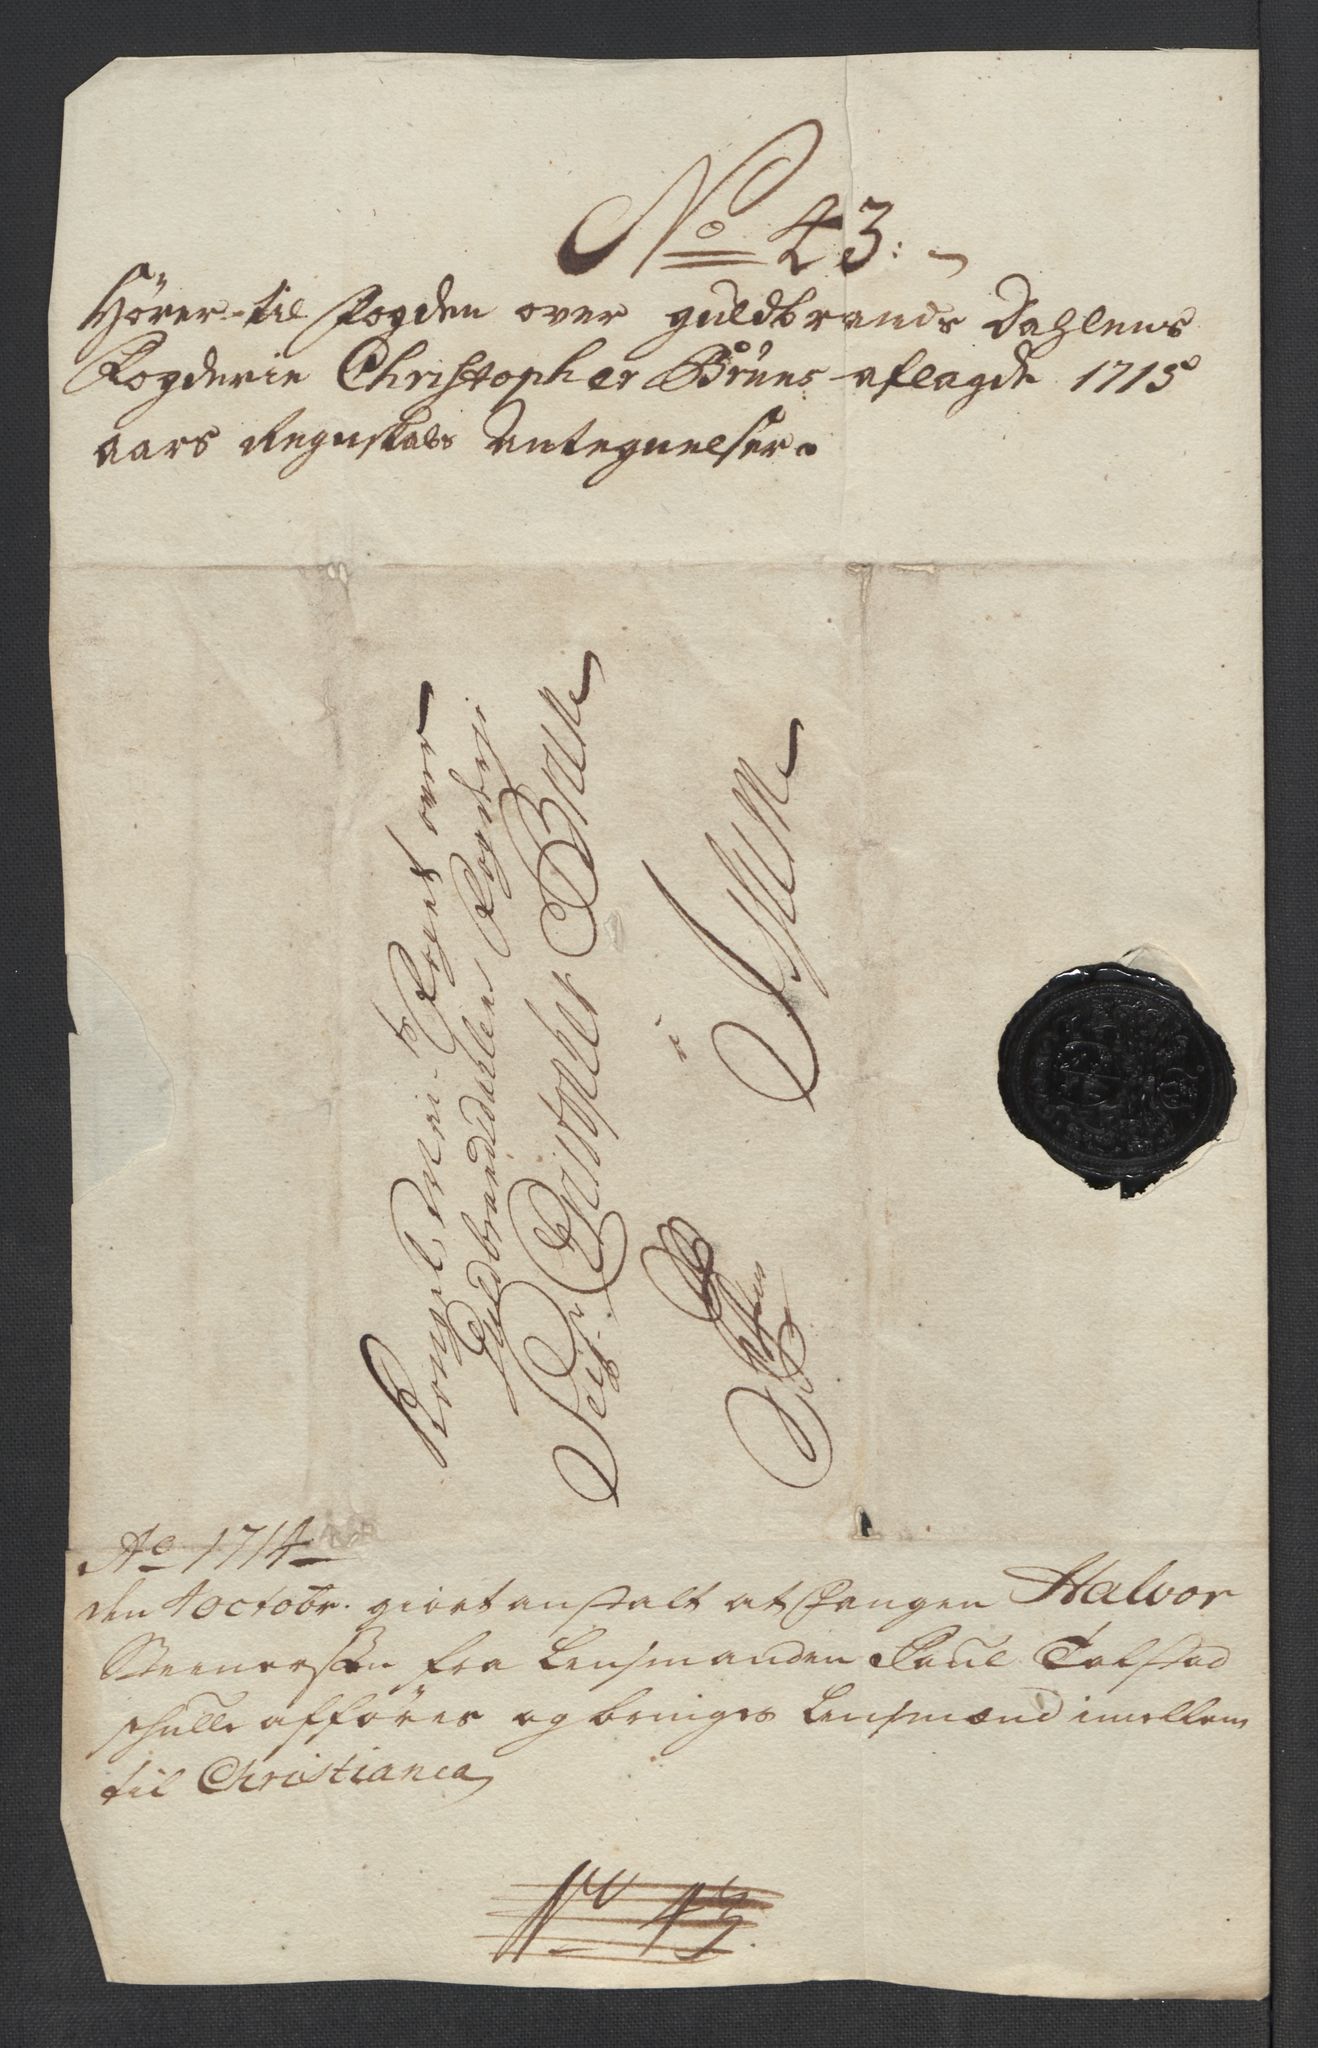 No 43:
Hörer til Fogden over Guldbrands Dahlens
Fogderie Christopher Bruns aflagde 1715
aars Regnskabs Antegnelser.
Kongel May: Foget over
Guldbrandsdahlens Fogderj
Sr Christopher Brun
a
Isum
Ao 1714
den 1 octobr. giort anstalt at fangen Halvor
Steenersen fra Lensmanden Paul Tofstad
skulle afføres og bringes Lensmænd imellem
til Christiania
No 43